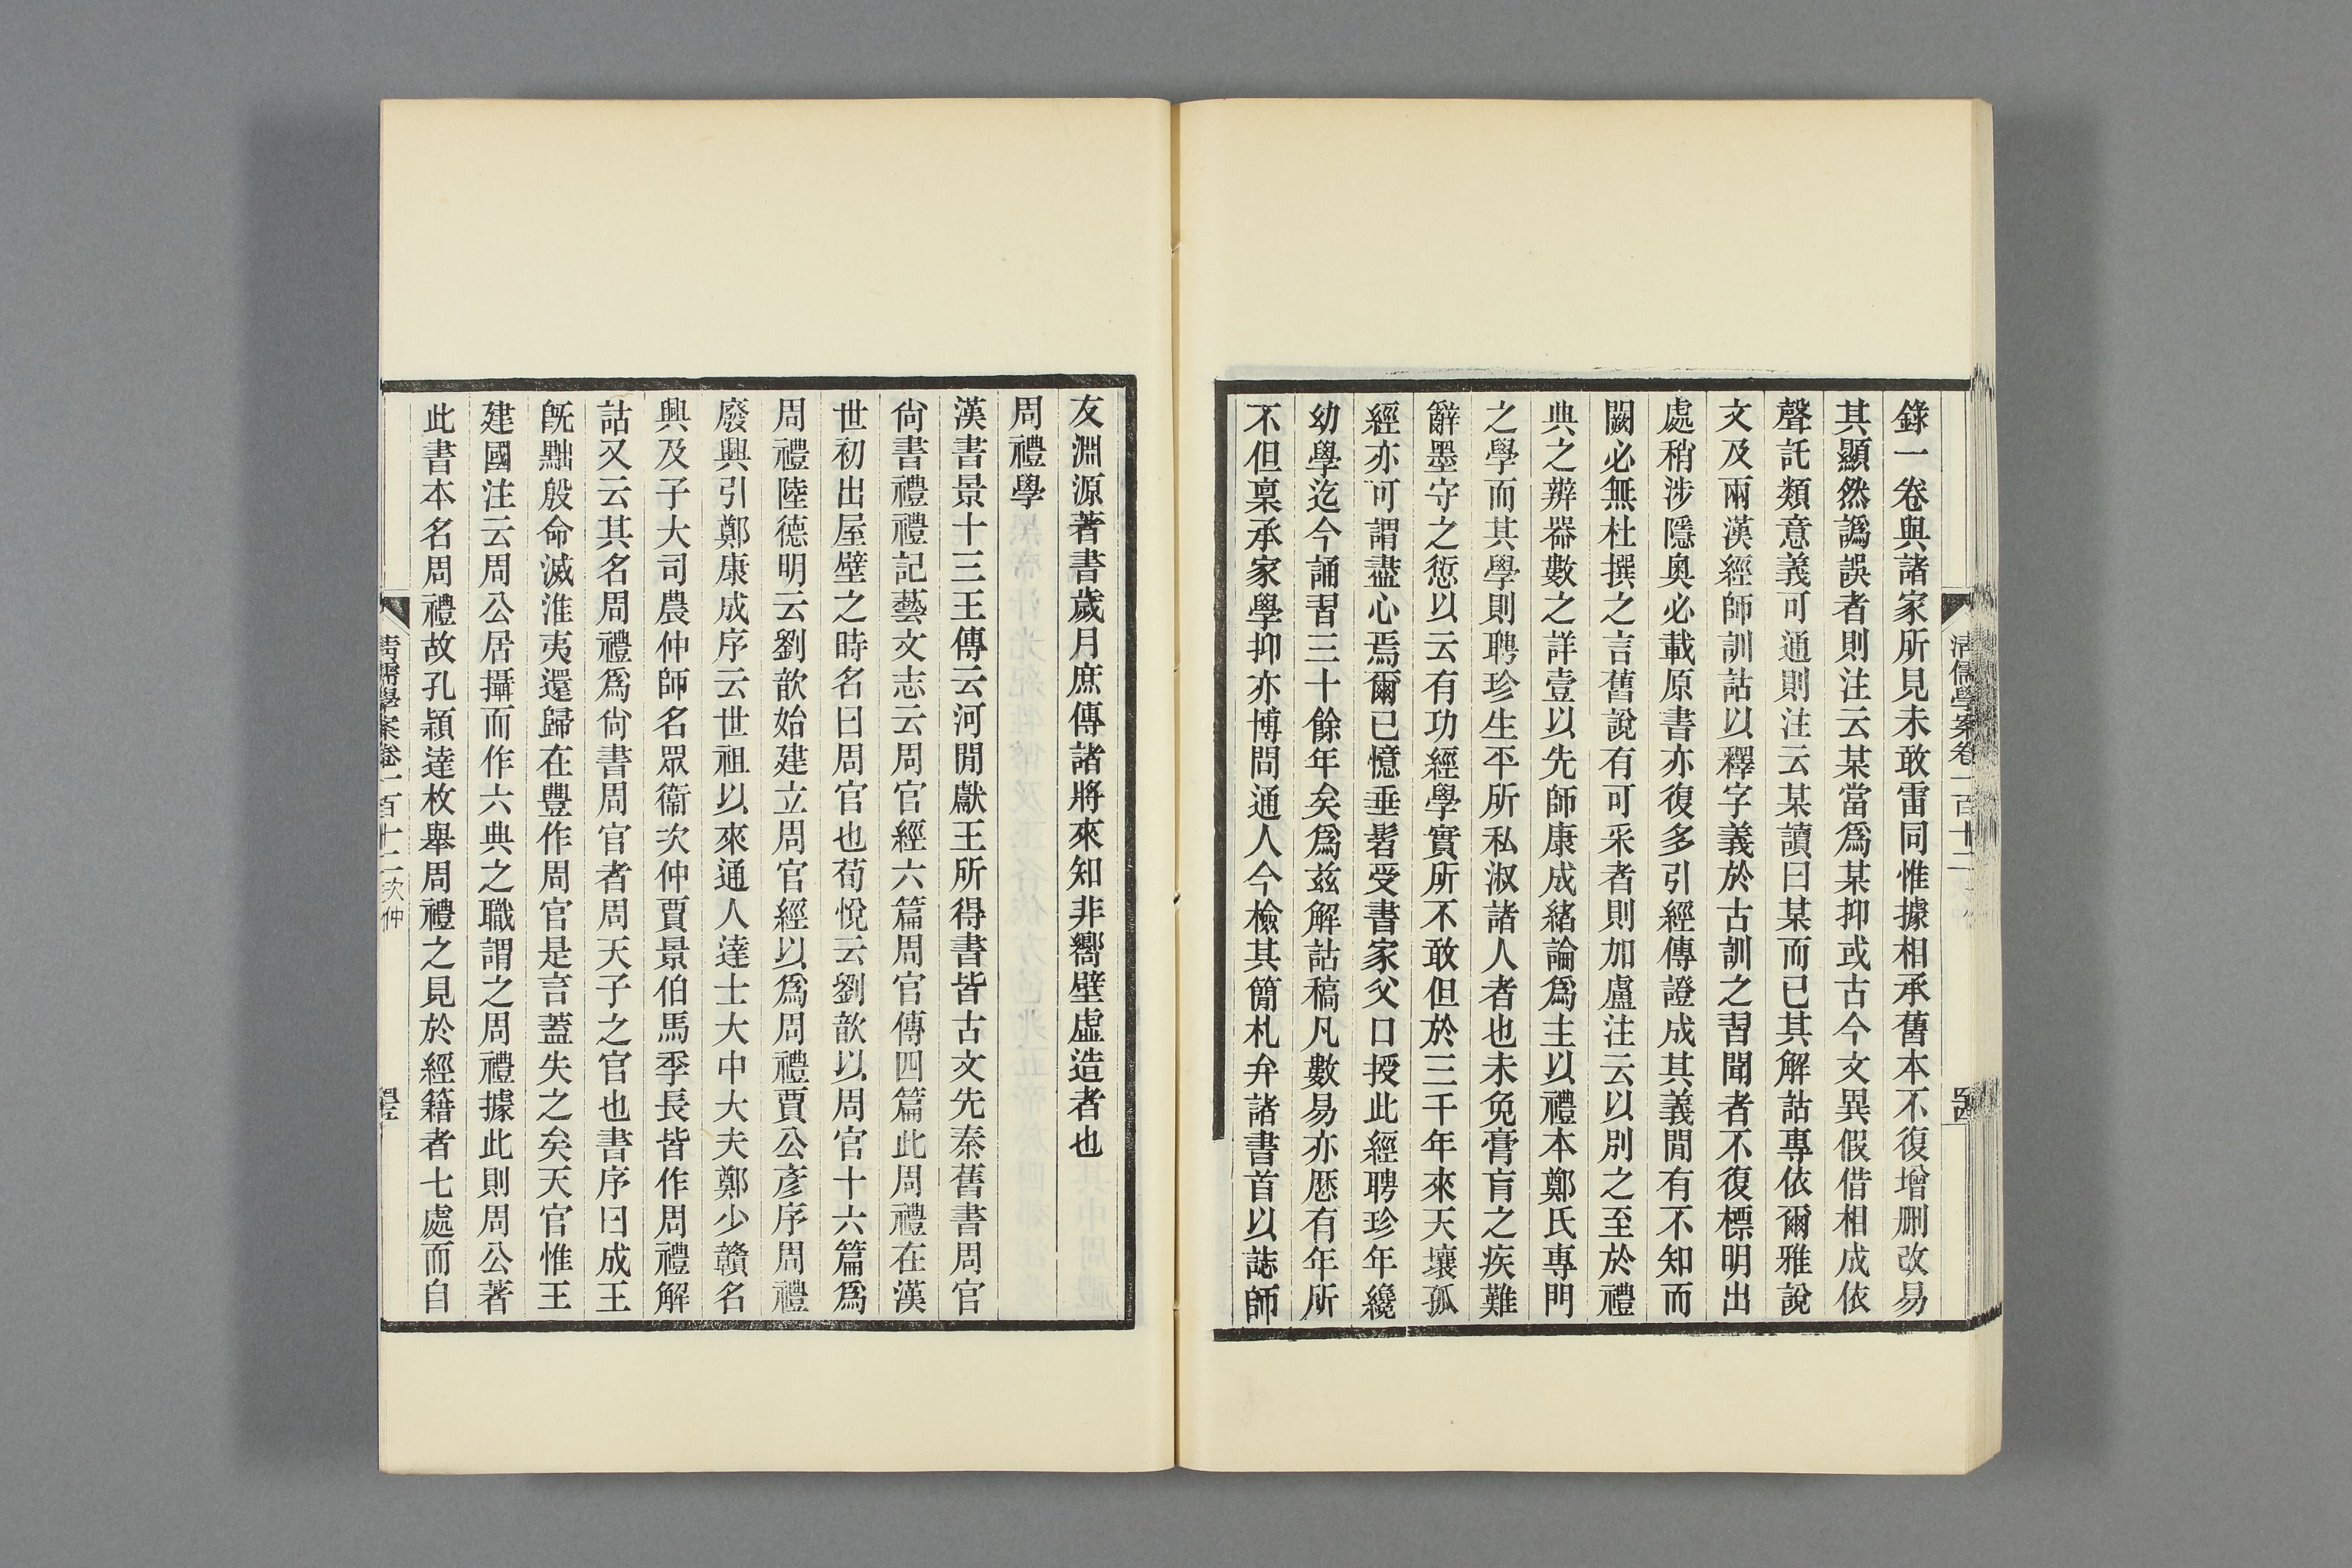 錄一卷與諸家所見未敢雷同惟據相承舊本不復增刪改易
其顯然譌誤者則注云某當爲某抑或古今文異假借相成依
聲託類意義可通則注云某讀曰某而已其解詁專依爾雅說
文及兩漢經師訓詁以釋字義於古訓之習聞者不復標明出
處稍涉隱奧必載原書亦復多引經傳證成其義閒有不知而
闕必無杜撰之言舊說有可采者則加盧注云以別之至於禮
典之辨器數之詳壹以先師康成緒論爲主以禮本鄭氏專門
之學而其學則聘珍生平所私淑諸人者也未免膏肓之疾難
辭墨守之愆以云有功經學實所不敢但於三千年來天壤孤
經亦可謂盡心焉爾已憶垂髫受書家父口授此經聘珍年纔
幼學迄今誦習三十餘年矣爲兹解詁稿凡數易亦歷有年所
不但稟承家學抑亦博問通人今檢其簡札弁諸書首以誌師
清儒學案卷一百十二
友淵源著書歲月庶傳諸將來知非嚮壁虛造者也
周禮學
漢書景十三王傳云河閒獻王所得書皆古文先秦舊書周官
尙書禮禮記藝文志云周官經六篇周官傳四篇此周禮在漢
世初出屋壁之時名曰周官也荀悅云劉歆以周官十六篇爲
周禮陸德明云劉歆始建立周官經以爲周禮賈公彥序周禮
廢興引鄭康成序云世祖以來通人達士大中大夫鄭少贛名
興及子大司農仲師名眾衞次仲賈景伯馬季長皆作周禮解
詁又云其名周禮爲尙書周官者周天子之官也書序曰成王
旣黜殷命滅淮夷還歸在豐作周官是言蓋失之矣天官惟王
建國注云周公居攝而作六典之職謂之周禮據此則周公著
此書本名周禮故孔穎達枚舉周禮之見於經籍者七處而自
清儒學案卷一百十二 次仲